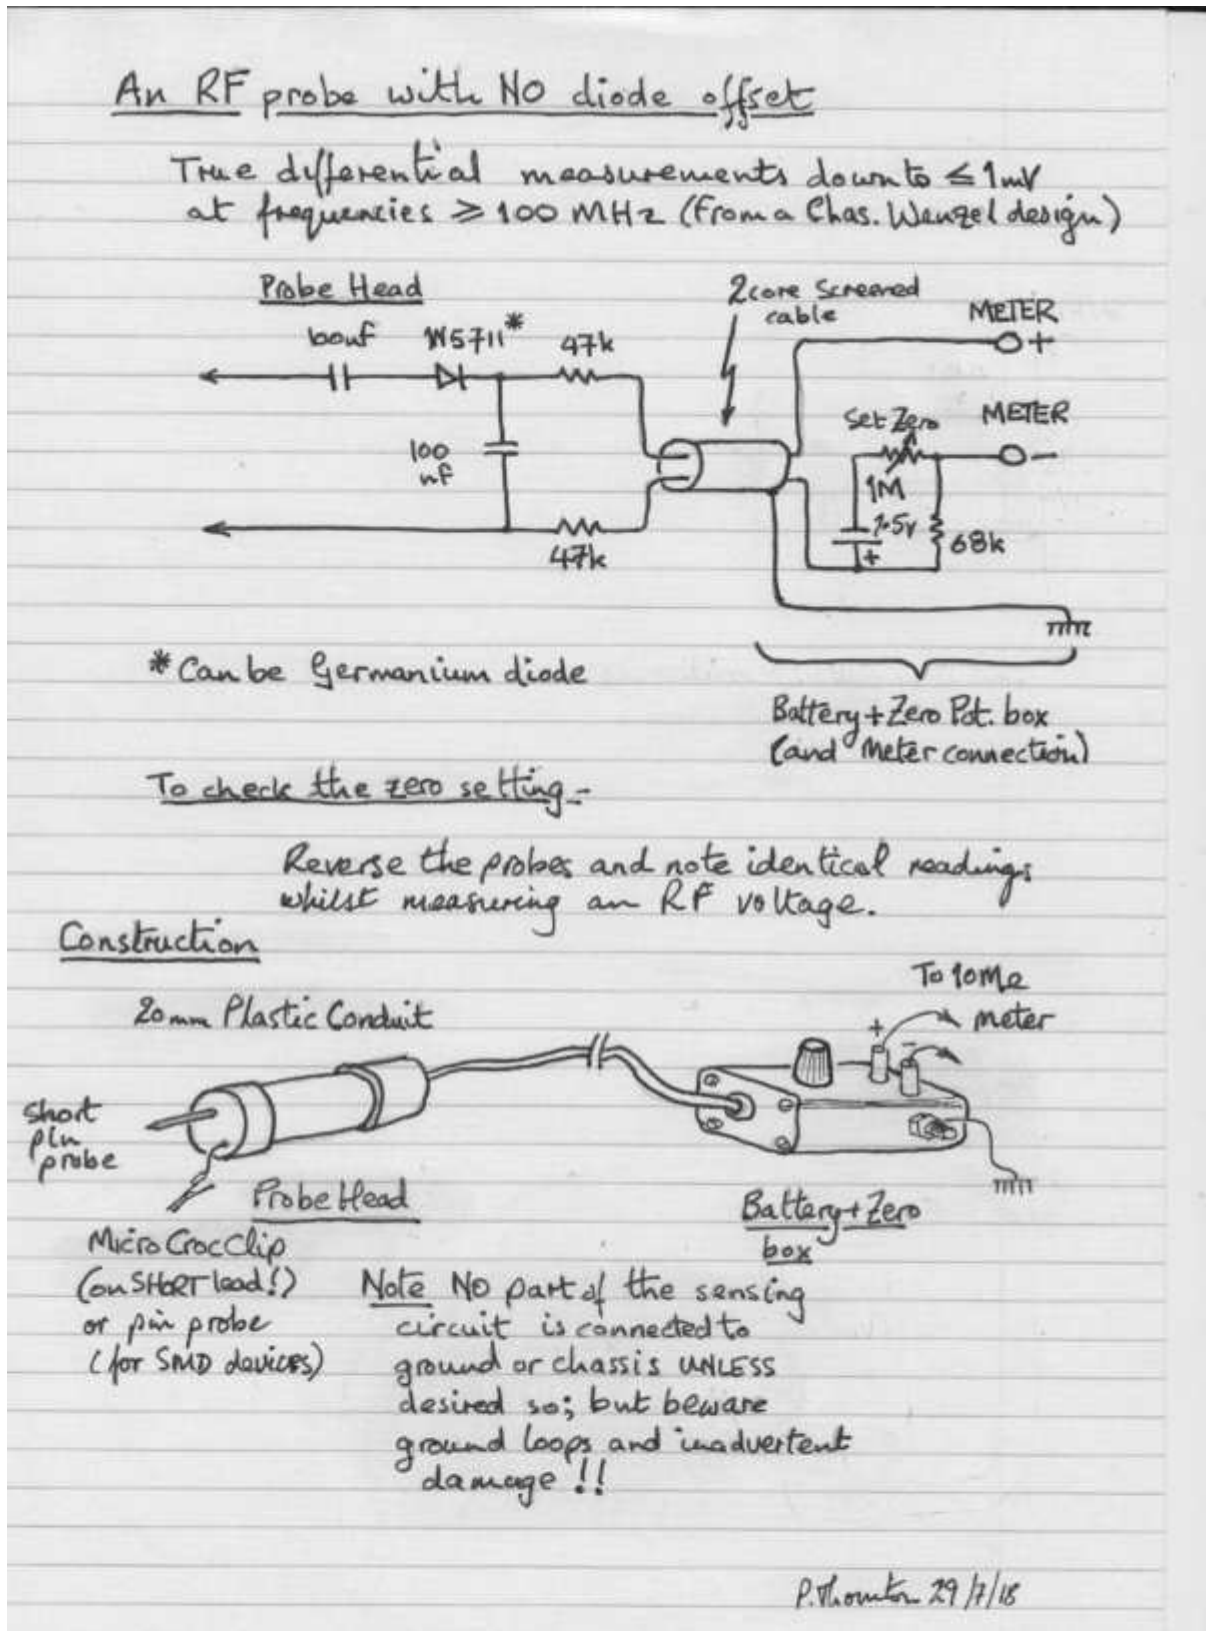 An RF probe with NO diode offset
True differential measurements down to ≤ 1mV
at frequencies ≥ 100 MHz (From a Chas. Wenzel design)
Probe Head
2 core screened
cable
METER
+
100nf
1N5711*
47k
METER
-
Set Zero
1M
100
nf
1.5v
+
68k
47k
*Can be Germanium diode
Battery + Zero Pot. box
(and Meter connection)
To check the zero setting :-
Reverse the probes and note identical readings
whilst measuring an RF voltage.
Construction
To 10MΩ
meter
+
-
20mm Plastic Conduit
short
pin
probe
Probe Head
Battery + Zero
box
Micro Croc Clip
(on SHORT lead!)
or pin probe
(for SMD devices)
Note NO part of the sensing
circuit is connected to
ground or chassis UNLESS
desired so; but beware
ground loops and inadvertent
damage !!
P. Thornton 29/7/18